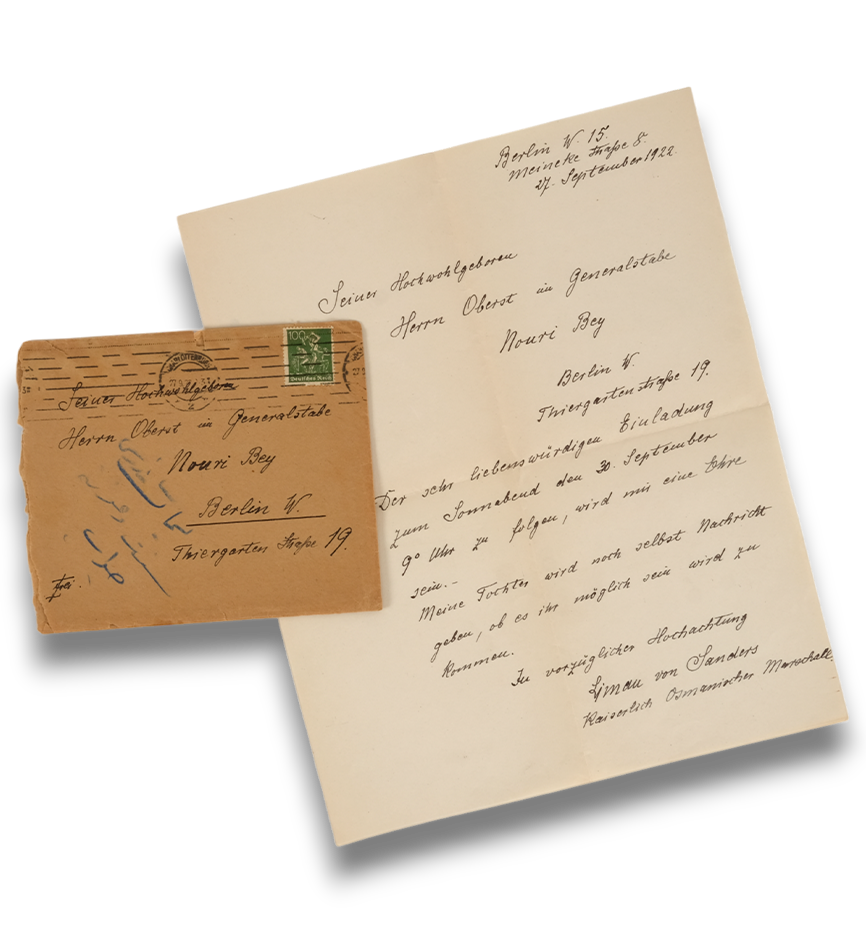 Berlin W. 15.
Meineke Straße 8.
27. September 1922.
Seiner Hochwohlgeboren
Herrn Oberst im Generalstabe
Nouri Bey
Berlin W.
Thiergartenstraße 19.
Der sehr liebenswürdigen Einladung
zum Sonnabend den 30. September
9⁰ Uhr zu folgen, wird mir eine Ehre
sein.-
Meine Tochter wird noch selbst Nachricht
geben, ob es ihr möglich sein wird zu
kommen.
In vorzüglicher Hochachtung
Liman von Sanders
Kaiserlich Osmanischer Marschall.
100
Deutsches Reich
Seiner Hochwohlgeboren
Herrn Oberst im Generalstabe
Nouri Bey
Berlin W.
Thiergarten Straße 19.
frei.